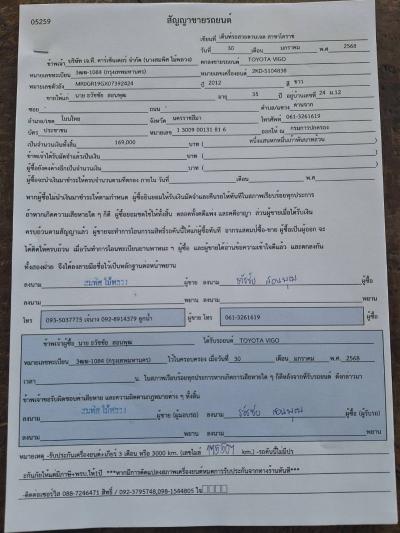 05259
สัญญาขายรถยนต์
เขียนที่ เต็นท์รถสวยตาบเจต สาขาโคราช
วันที่ 30 เดือน มกราคม พ.ศ. 2568
ข้าพเจ้า บริษัท เจ.ที. คาร์เซ็นเตอร์ จำกัด ตกลงขายรถยนต์ TOYOTA VIGO
หมายเลขทะเบียน 3ฒฒ-1084 (กรุงเทพมหานคร) หมายเลขเครื่องยนต์ 2KD-S104838
หมายเลขตัวถัง ปี 2012 สี ขาว
ขายให้แก่ นาย ธวัชชัย สอนพุฒ อายุ 35 ปี อยู่บ้านเลขที่ 24 ม.12
ซอย - ถนน - ตำบล/แขวง
อำเภอ/เขต จังหวัด นครราชสีมา โทรศัพท์ 061-3261619
บัตร ประชาชน หมายเลข 1 3009 00131 81 6 ออกให้ ณ กรมการปกครอง
เป็นจำนวนเงินทั้งสิ้น 169,000 บาท ( หนึ่งแสนหกหมื่นเก้าพันบาทถ้วน )
ข้าพเจ้าได้รับมัดจำแล้วเป็นเงิน บาท ( )
ผู้ซื้อยังคงค้างอีกเป็นจำนวนเงิน บาท ( )
ผู้ซื้อจะนำเงินมาชำระให้ครบจำนวนตามที่ตกลง ภายใน วันที่ เดือน พ.ศ.
หากผู้ซื้อไม่นำเงินมาชำระตามกำหนด ผู้ซื้อยินยอมให้ริบเงินมัดจำและคืนรถให้ทันทีในสภาพเรียบร้อยทุกประการ
ถ้าหากเกิดความเสียหายใด ๆ ก็ดี ผู้ซื้อยอมชดใช้ให้ทั้งสิ้น ตลอดทั้งคดีแพ่ง และคดีอาญา ส่วนผู้ขายเมื่อได้รับเงิน
ครบถ้วนตามสัญญาแล้ว ผู้ขายจะทำการโอนกรรมสิทธิ์รถคันนี้ให้แก่ผู้ซื้อทันที
ได้คิดให้ครบถ้วน เมื่อวันทำการโอนทะเบียนยานพาหนะ ๆ ผู้ซื้อ และผู้ขายได้อ่านข้อความเข้าใจดีแล้ว และตกลงกัน
ทั้งสองฝ่าย จึงได้ลงลายมือชื่อไว้เป็นหลักฐานต่อหน้าพยาน
ลงนาม ผู้ขาย ลงนาม ธวัชชัย สอนพุฒ ผู้ซื้อ
ลงนาม พยาน ลงนาม พยาน
โทร 093-5037775 092-8914379 ผู้ขาย โทร 061-3261619 ผู้ซื้อ
ข้าพเจ้าผู้ซื้อ นาย ธวัชชัย สอนพุฒ ได้รับรถยนต์ TOYOTA VIGO
หมายเลขทะเบียน 3ฒฒ-1084 (กรุงเทพมหานคร) ไว้ในครอบครอง เมื่อวันที่ 30 เดือน มกราคม พ.ศ. 2568
เวลา น. ในสภาพเรียบร้อยทุกประการหากเกิดการเสียหายใด ๆ ก็ดีหลังจากที่รับรถยนต์ ดังกล่าวมา
ข้าพเจ้าขอรับผิดชอบค่าเสียหาย และความผิดตามกฎหมายต่าง ๆ ทั้งสิ้น
ลงนาม ผู้ขาย (ผู้มอบรถ) ลงนาม ธวัชชัย สอนพุฒ ผู้ซื้อ (ผู้รับรถ)
ลงนาม พยาน ลงนาม พยาน
หมายเหตุ -รับประกันเครื่องยนต์+เกียร์ 3 เดือน หรือ 3000 km. (เลขไมล์ km.) -รถคันนี้ไม่มีปร
ะกันภัยให้แต่มีภาษี+พรบ.ให้1ปี ***หากมีการดัดแปลงสภาพเครื่องยนต์หมดการรับประกันจากทางร้านทันที***
-ติดต่อเซอร์วิส 088-7246471 สิทธิ์ / 092-3795748,098-1544805